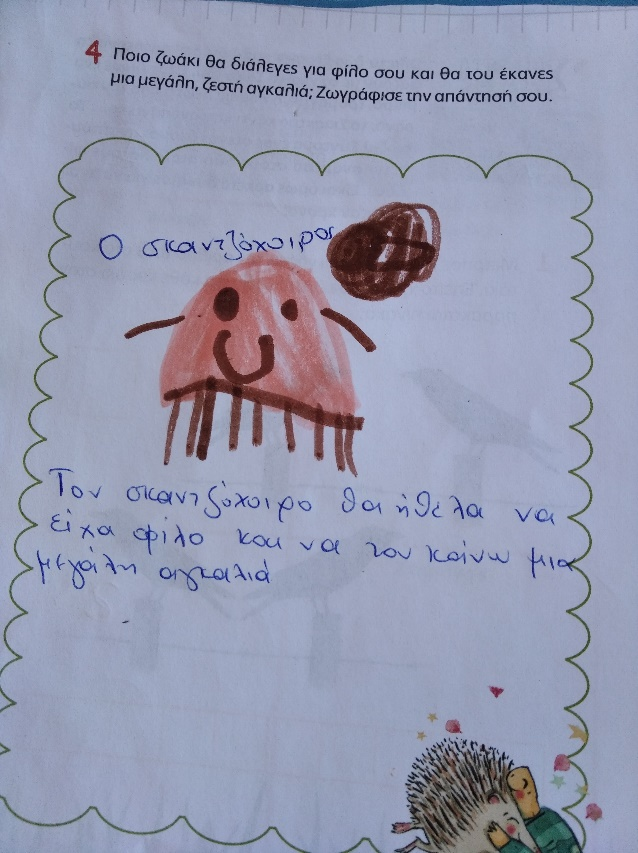 4 Ποιο ζωάκι θα διάλεγες για φίλο σου και θα του έκανες
μια μεγάλη, ζεστή αγκαλιά; Ζωγράφισε την απάντησή σου.
Ο σκαντζόχοιρος
Τον σκαντζόχοιρο θα ήθελα να
είχα φίλο και να τον κάνω μια
μεγάλη αγκαλιά